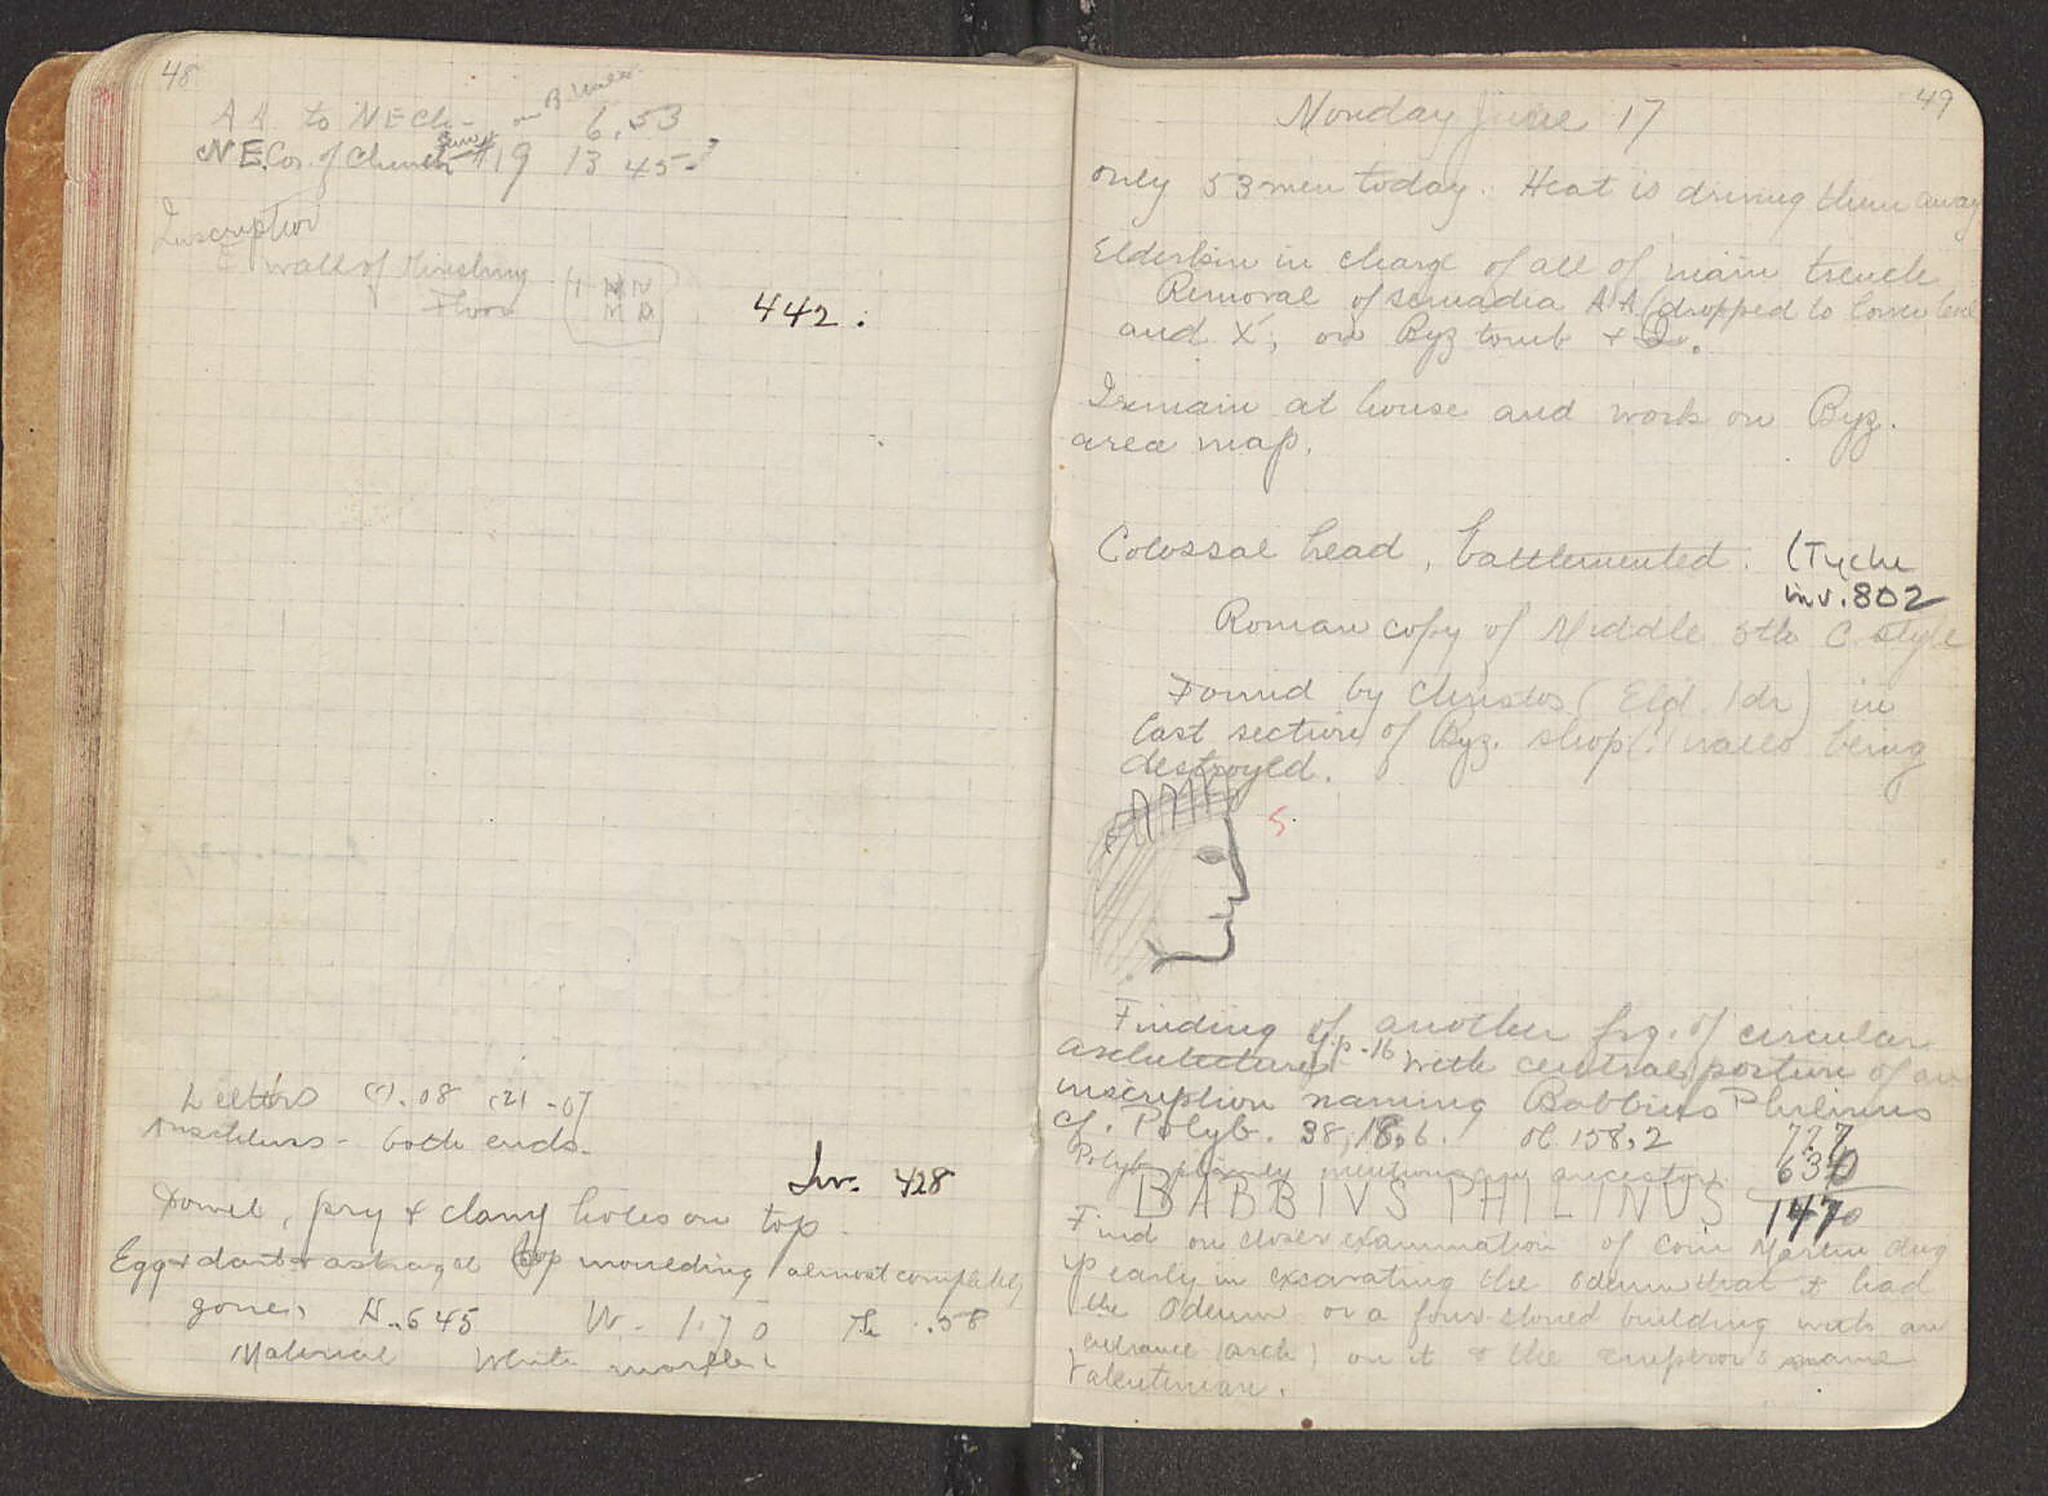 48
AA to NE Ch- 6.53
NE. Cor. of Church #19 13 45-
Inscription
E wall of
Floor
442.
Letters .08 -07
both ends.
Inv. 428
Dowel, pry & clamp holes on top
Egg & dart & astragal top moulding almost completely
gone, H. .645 W. 1.70 Th .58
Material White marble
49
Monday June 17
Only 53 men today. Heat is driving them away
Elderkin in charge of all of main trench
Removal of semadia AA (dropped to lower level
and X'; on Byz tomb +
I remain at house and work on Byz.
area map.
Colossal head, battlemented. (Tyche
inv. 802
Roman copy of Middle 5th C style
Found by Christos (Eld. 1dr) in
last section of Byz. shop(?) walls being
destroyed.
5.
Finding of another frg. of circular
architecture p.16 with central portion of an
inscription naming Babbius Philinus
cf. Polyb. 38, 18, 6. Ol 158,2
777
Polyb mentions an ancestor.
630
BABBIVS PHILINUS
147
Find on closer examination of coin Martin dug
up early in excavating the Odeum that I had
the Odeum or a four-storied building with an
entrance (arch) on it & the emperor's name
Valentinian.